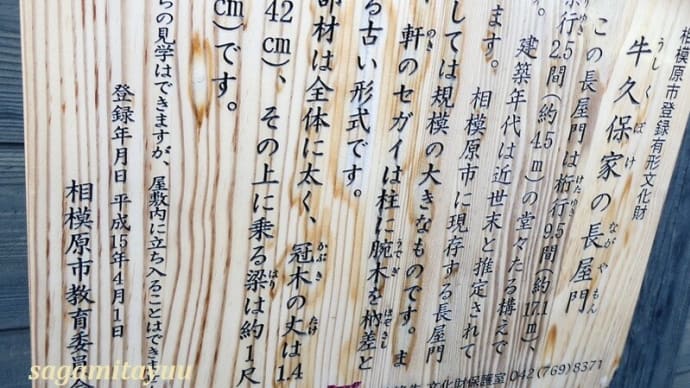 相模原市登録有形文化財
牛久保家の長屋門
うしくぼけ ながやもん
この長屋門は桁行9.5間(約17.1
けたゆき
行2.5間(約4.5m)の堂々たる構えで
ゆき
す。建築年代は近世末と推定されて
ます。相模原市に現存する長屋門
しては規模の大きなものです。ま
、軒のセガイは柱に腕木を枘差と
のき うでぎ ほぞさし
る古い形式です。
部材は全体に太く、冠木の丈は1.4
かぶき たけ
42cm)、その上に乗る梁は約1尺
はり
cm)です。
らの見学はできますが、屋敷内に立ち入ることはできませ
登録年月日 平成15年4月1日
相模原市教育委員会
文化財保護室 042(769)8371
sagamitayuu